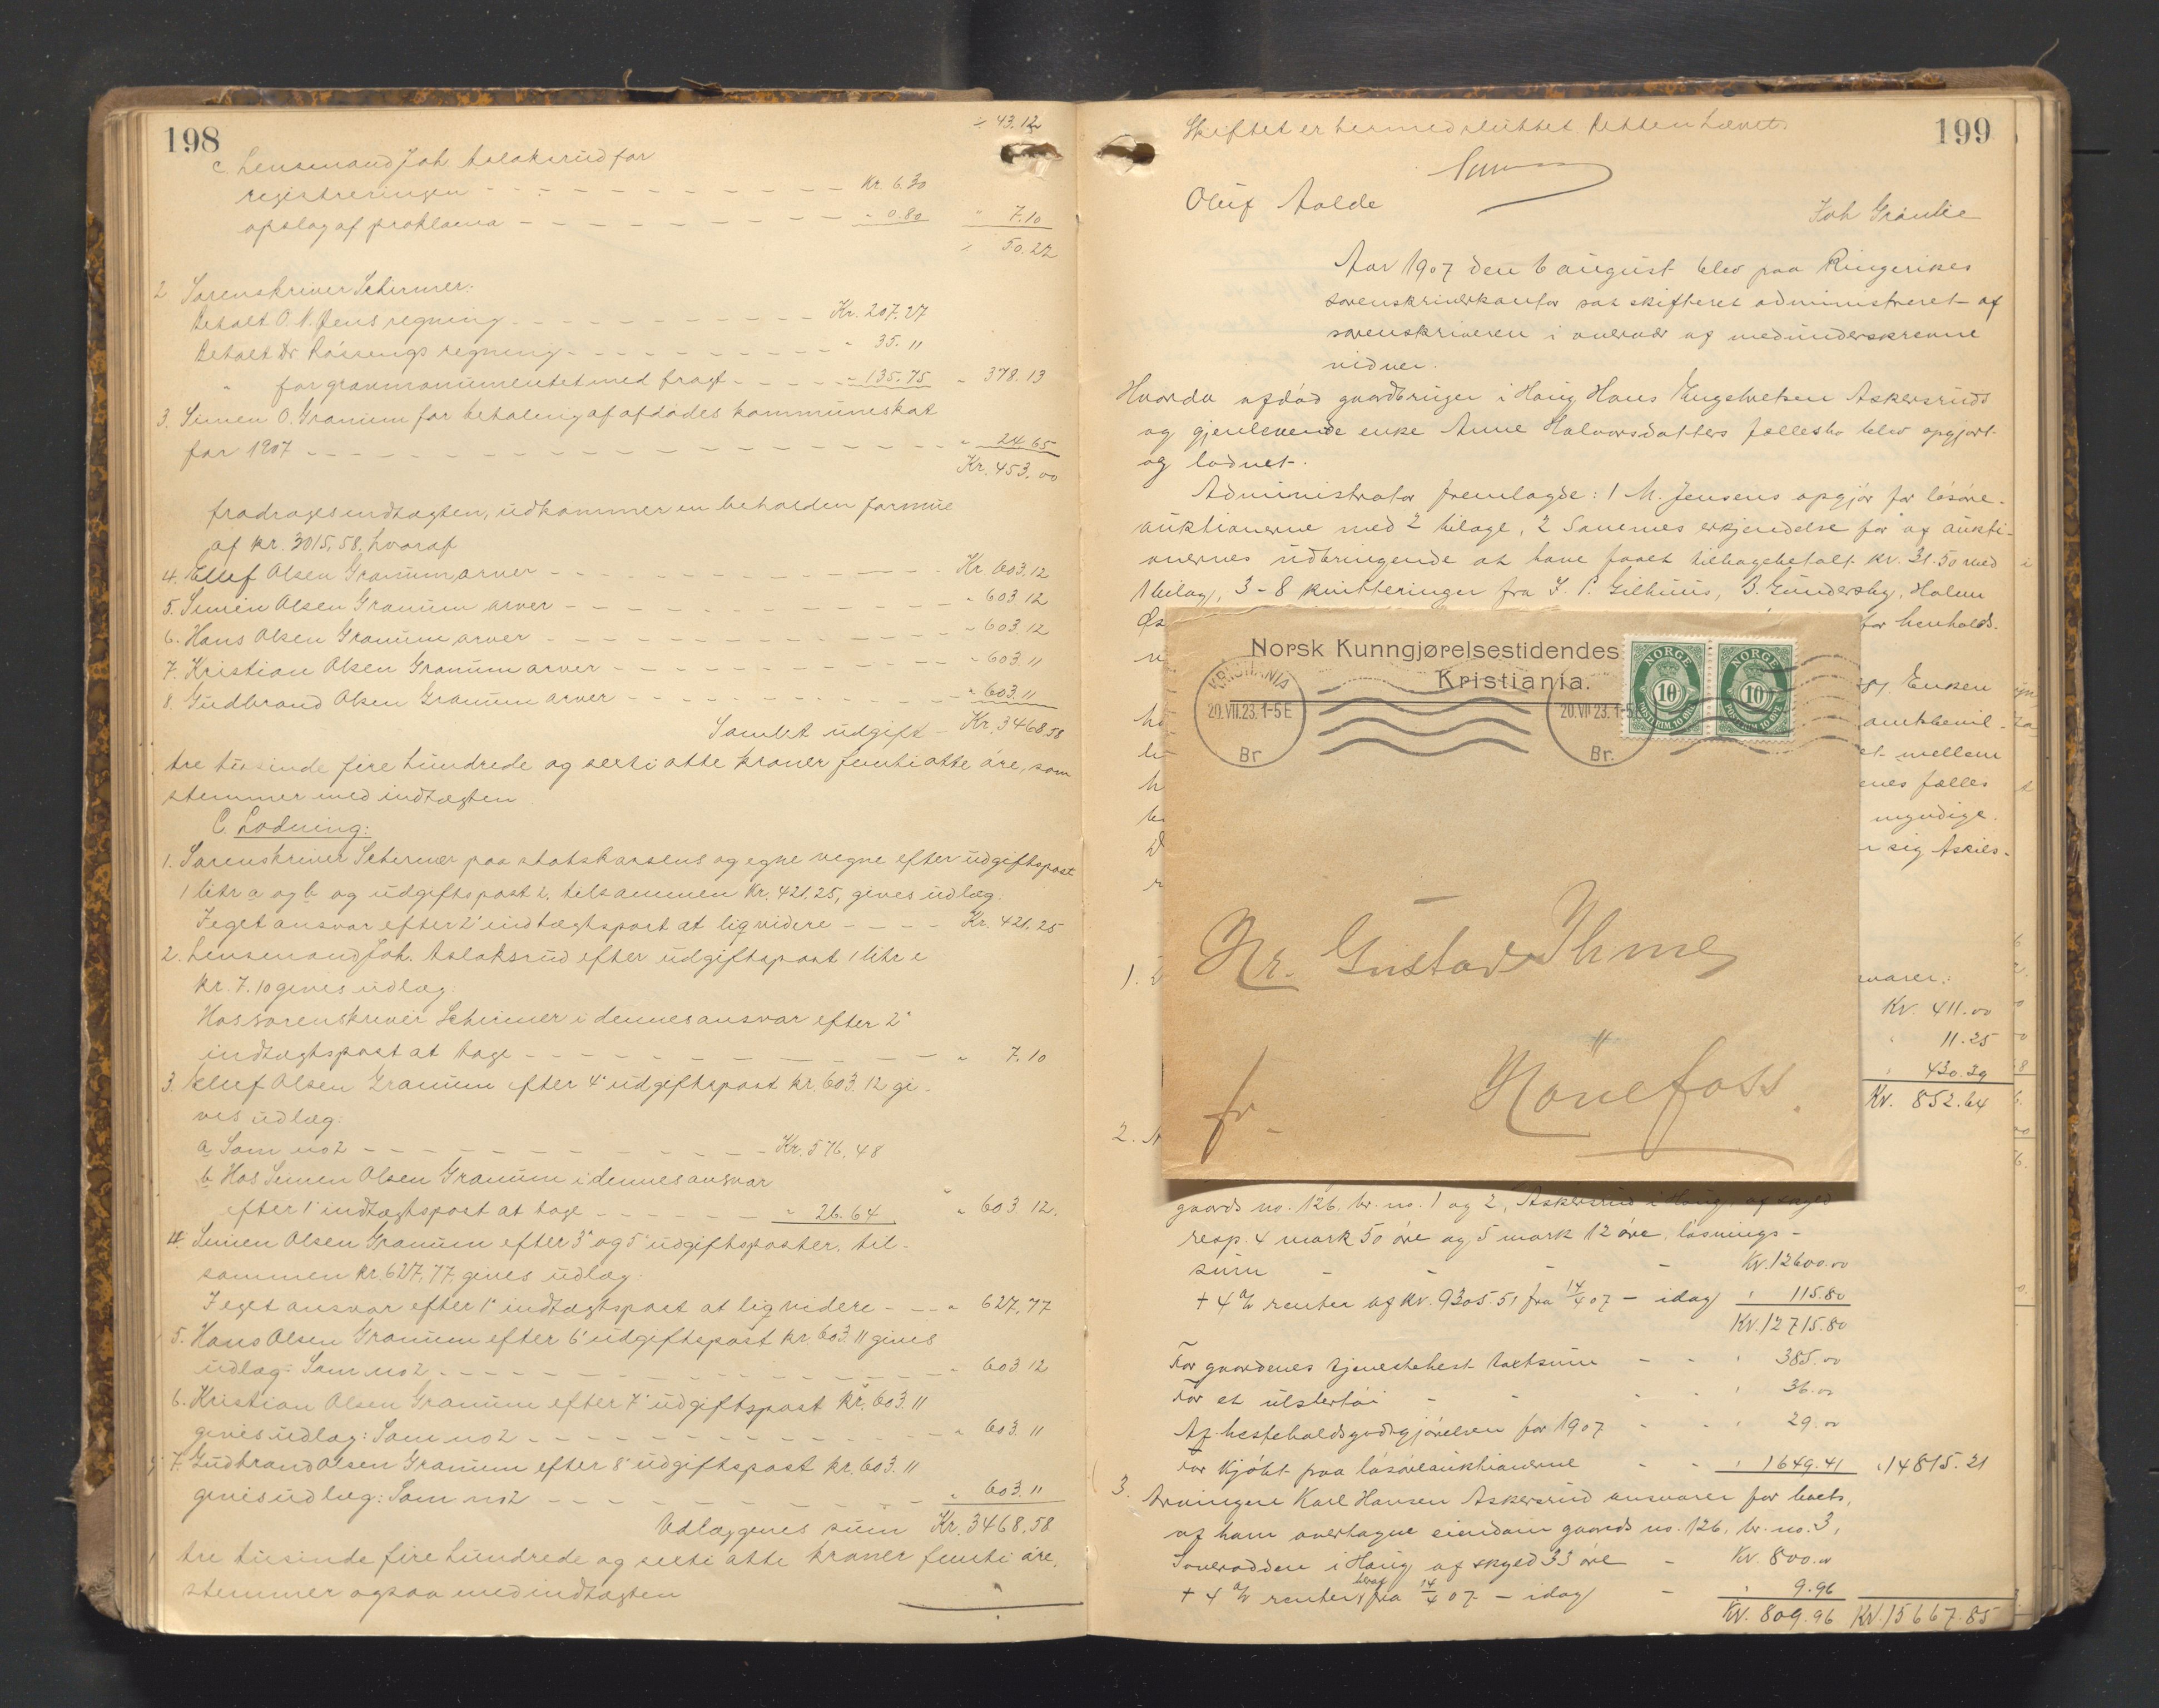 198
÷ 43.12
c. Lensmand Joh. Aslaksrud for
registreringen - - - - Kr. 6.30
opslag af proklama - - - - " 0.80 " 7.10
÷ 50.22
2 Sorenskriver Schirmer:
Betalt O. N. Jens regning - - - - Kr. 207.27
Betalt Dr Røssengs regning - - - - " 35.11
" for gravmonumentet med fragt - - - - " 135.75 " 378.13
3. Simen O. Granum for betaling af afdødes kommuneskat
for 1907 - - - - " 24.65
Kr. 453.00
fradrages indtægten, udkommer en beholden formue
af kr. 3015,58, hvoraf
4. Elluf Olsen Granum arver - - - - Kr. 603.12
5. Simen Olsen Granum arver - - - - " 603.12
6. Hans Olsen Granum arver - - - - " 603.12
7. Kristian Olsen Granum arver - - - - " 603.11
8. Gudbrand Olsen Granum arver - - - - " 603.11
Samlet udgift - Kr. 3468.58
tre tusinde fire hundrede og sexti otte kroner femti otte øre, som
stemmer med indtægten.
C. Lodning:
1. Sorenskriver Schirmer paa statskassens og egne vegne efter udgiftspost
1 litr a og b og udgiftspost 2, tilsammen Kr. 421,25, gives udlæg:
I eget ansvar efter 2' indtægtspost at liqvidere - - - - Kr. 421.25
2. Lensmand Joh. Aslaksrud efter udgiftspost 1 litr c
kr. 7.10 gives udlæg:
Hos sorenskriver Schirmer i dennes ansvar efter 2'
indtægtspost at tage - - - - " 7.10
3. Elluf Olsen Granum efter 4' udgiftspost kr. 603.12 gi-
ves udlæg:
a. Som no 2 - - - - Kr. 576,48
b Hos Simen Olsen Granum i dennes ansvar
efter 1' indtægtspost at tage - - - - " 26.64 " 603.12.
4. Simen Olsen Granum efter 3' og 5' udgiftsposter, til-
sammen kr. 627,77, gives udlæg:
I eget ansvar efter 1' indtægtspost at liqvidere - - - " 627,77
5. Hans Olsen Granum efter 6' udgiftspost kr. 603.11 gives
udlæg: Som no 2 - - - - " 603.12
6. Kristian Olsen Granum efter 7' udgiftspost kr. 603.11
gives udlæg: Som no 2 - - - - " 603.11
7. Gudbrand Olsen Granum efter 8' udgiftspost kr. 603.11
gives udlæg: Som no 2 - - - - " 603.11
Udlæggenes sum Kr. 3468,58
tre tusinde fire hundrede og sexti otte kroner femti øre,
stemmer ogsaa med indtægten
199
Skiftet er hermed sluttet. Retten hævet.
Oluf Aalde
Aar 1907 den 6 august blev paa Ringerikes
sorenskriverkontor sat skifteret administreret af
sorenskriveren i overvær af medunderskrevne
vidner.
Hvorda afdød gaardbruger i Haug Hans Engebretsen Askersruds
og gjenlevende enke Anne Halvorsdatters fællesbo blev opgjort
og lodnet.
Administrator fremlagde: 1 M. Jensens opgjør for løsøre-
auktionerne med 2 bilage, 2 Sammes erkjendelse for af aukti-
onernes udbringende at have faaet tilbagebetalt kr. 31.50 med
1 bilag, 3-8 kvitteringer fra J. P. Gilhuus, B. Gundersby, Holm
for henholds-
Enken
amtbevil-
mellem
enes fælles
myndige.
sig Askers-
1.
Kr. 411.00
" 11.25
" 430.39
Kr. 852.64
2.
Norsk Kunngjørelsestidendes
Kristiania.
KRISTIANIA
20.VII.23.1-5E
Br
20.VII.23.1-5
Br.
NORGE
10
POSTFRIM 10 ØRE
NORGE
10
POSTFRIM 10 ØRE
Hr. Gustav Ihme
"
fr
Hönefoss.
gaards no. 126, br. no. 1 og 2, Askersrud i Haug, af skyld
resp. 4 mark 50 øre og 5 mark 12 øre, løsnings-
sum - - - - Kr. 12600.00
+ 4 % renter af kr. 9305.51 fra 14/4 07 - idag " 115.80
Kr. 12715.80
For gaardenes tjenestehest taxtsum - - " 385.00
For et ulstertøi - - - " 36.00
Af hesteholdsgodtgjørelsen for 1907 - - " 29.00
For kjøbt paa løsøreauktionerne - - " 1649.41 " 14815.21
3. Arvingen Karl Hansen Askersrud ansvarer for boets,
af ham overtagne eiendom gaards no. 126, br. no. 3,
i Haug af skyld 33 øre - Kr. 800.00
+ 4 % renter heraf fra 14/4 07 - idag - " 9.96
Kr. 809.96 Kr. 15667.85